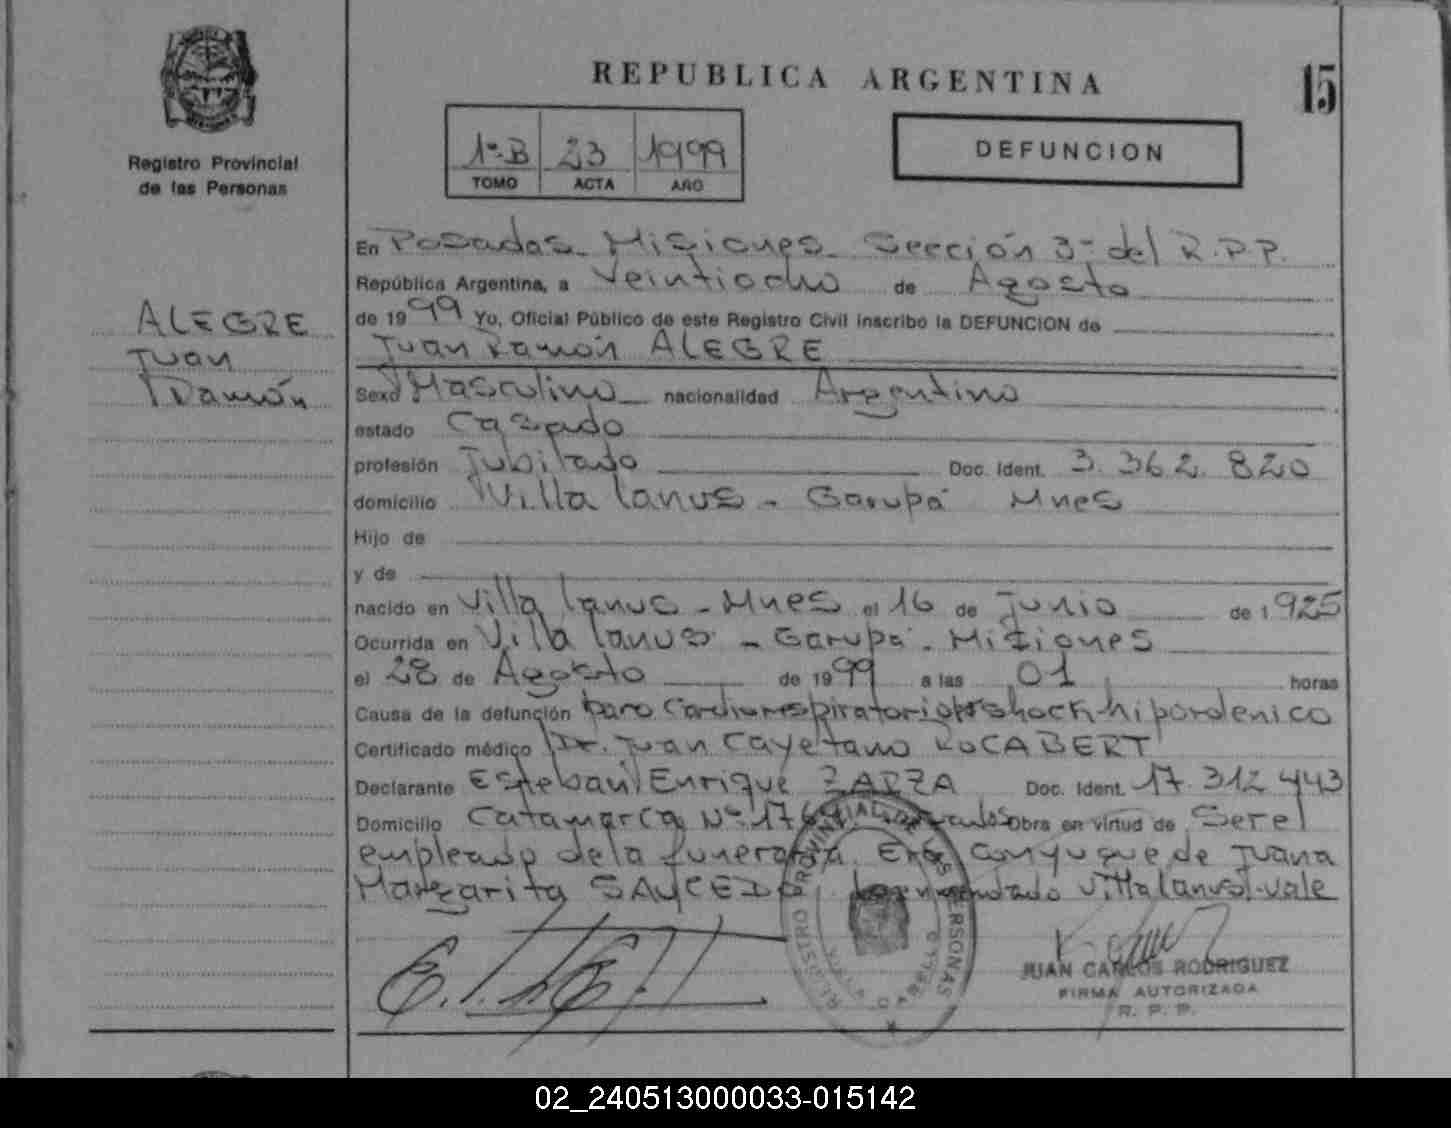 REPUBLICA ARGENTINA
15
Registro Provincial
de las Personas
1º B 23 1999
TOMO ACTA AÑO
DEFUNCION
ALEGRE
Juan
Ramón
En Posadas - Misiones - Sección 3º del R.P.P.
República Argentina, a Veintiocho de Agosto
de 1999 Yo, Oficial Público de este Registro Civil inscribo la DEFUNCION de
Juan Ramón ALEGRE
Sexo Masculino nacionalidad Argentino
estado Casado
profesión Jubilado Doc. Ident. 3.362.820
domicilio Villa lanus - Garupá Mnes
Hijo de
y de
nacido en Villa lanus - Mnes el 16 de Junio de 1925
Ocurrida en Villa lanus - Garupá - Misiones
el 28 de Agosto de 1999 a las 01 horas
Causa de la defunción paro cardiorespiratorio shock
Certificado médico Dr. Juan Cayetano ROCABERT
Declarante Esteban Enrique ZARZA Doc. Ident. 17.312.443
Domicilio Catamarca Nº Obra en virtud de Ser el
empleado de la funeraria. Era conyugue de Juana
Margarita SAUCEDO Villa lanus. vale
REGISTRO PROVINCIAL DE LAS PERSONAS
JUAN CARLOS RODRIGUEZ
FIRMA AUTORIZADA
R. P. P.
02_240513000033-015142